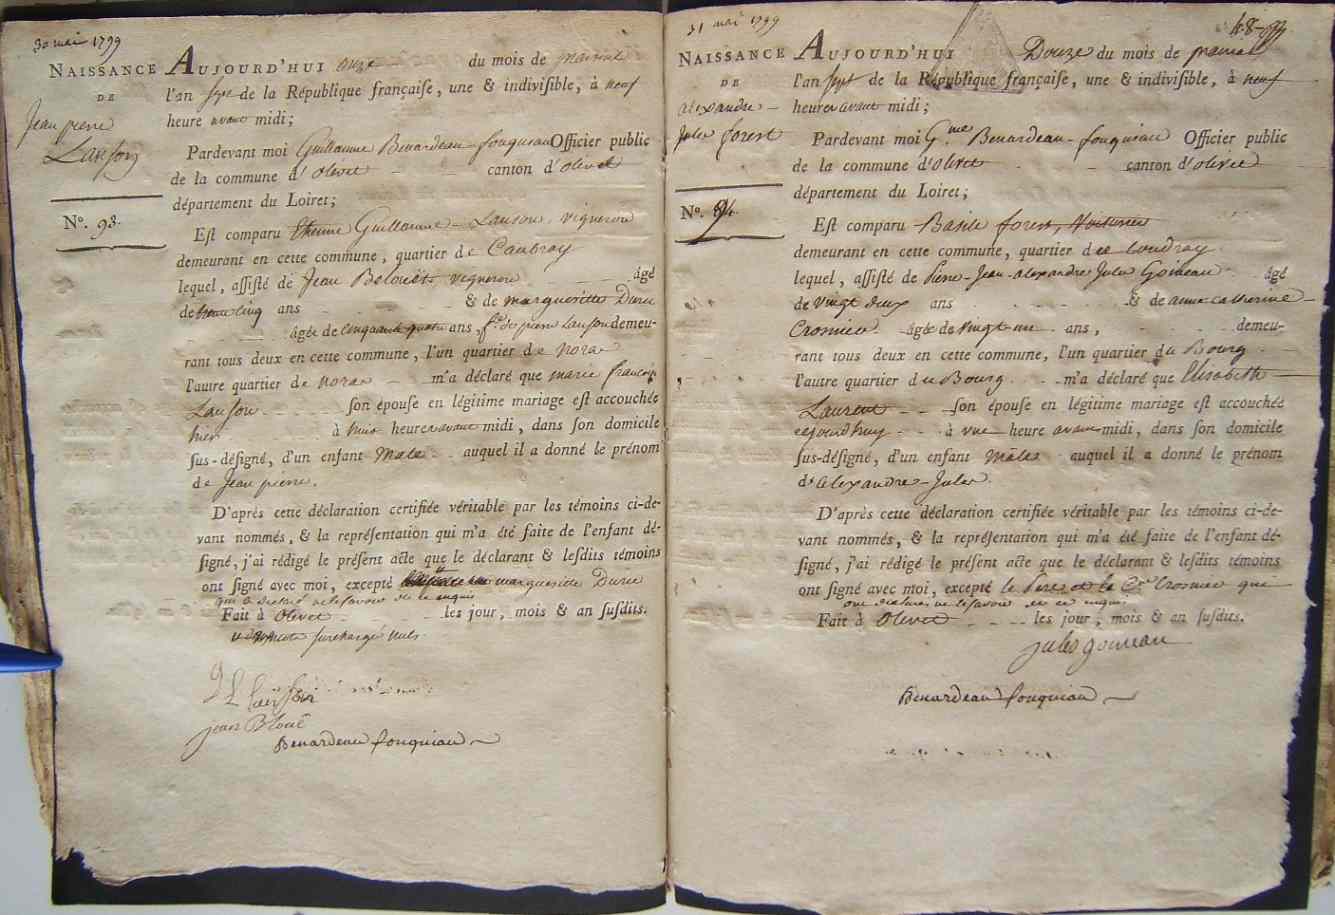 30 mai 1799
NAISSANCE
DE
Jean pierre
Lanson
N.º 93.
AUJOURD'HUI onze du mois de prairial
l'an sept de la République françaiſe, une & indiviſible, à neuf
heure avant midi;
Pardevant moi Guillaume Benardeau-fouqueau Officier public
de la commune d'olivet canton d'olivet
département du Loiret;
Eſt comparu Etienne Guillaume Lanson, vigneron
demeurant en cette commune, quartier de Caubray
lequel, aſſiſté de Jean vigneron âgé
de ans & de margueritte Duru
âgée de cinquante ans, demeu-
rant tous deux en cette commune, l'un quartier de
l'autre quartier de m'a déclaré que marie françoise
Lanson ſon épouſe en légitime mariage eſt accouchée
hier à heures avant midi, dans ſon domicile
ſus-déſigné, d'un enfant Male auquel il a donné le prénom
de Jean pierre.
D'après cette déclaration certifiée véritable par les témoins ci-de-
vant nommés, & la repréſentation qui m'a été faite de l'enfant dé-
ſigné, j'ai rédigé le préſent acte que le déclarant & leſdits témoins
ont ſigné avec moi, excepté margueritte Duru
qui a déclaré ne le savoir de ce enquis
Fait à Olivet les jour, mois & an ſuſdits.
surchargé nuls
Benardeau fouquiau
31 mai 1799
48
NAISSANCE
DE
alexandre
Jules forest
N.º 94.
AUJOURD'HUI Douze du mois de prairial
l'an sept de la République françaiſe, une & indiviſible, à neuf
heures avant midi;
Pardevant moi G.me Benardeau-fouquiau Officier public
de la commune d'olivet canton d'olivet
département du Loiret;
Eſt comparu Basile forest, Voiturier
demeurant en cette commune, quartier de coudray
lequel, aſſiſté de Pierre-Jean-alexandre Jules Goineau âgé
de vingt deux ans & de anne catherine
Crosnier âgée de vingt un ans, demeu-
rant tous deux en cette commune, l'un quartier du Bourg
l'autre quartier du Bourg m'a déclaré que Elisabeth
Laurent ſon épouſe en légitime mariage eſt accouchée
cejourdhuy à une heure avant midi, dans ſon domicile
ſus-déſigné, d'un enfant Male auquel il a donné le prénom
d'alexandre-Jules
D'après cette déclaration certifiée véritable par les témoins ci-de-
vant nommés, & la repréſentation qui m'a été faite de l'enfant dé-
ſigné, j'ai rédigé le préſent acte que le déclarant & leſdits témoins
ont ſigné avec moi, excepté le Pere et la C.ne Crosnier qui
ont déclarés ne le savoir de ce enquis
Fait à Olivet les jour, mois & an ſuſdits.
Jules goineau
Benardeau fouquiau